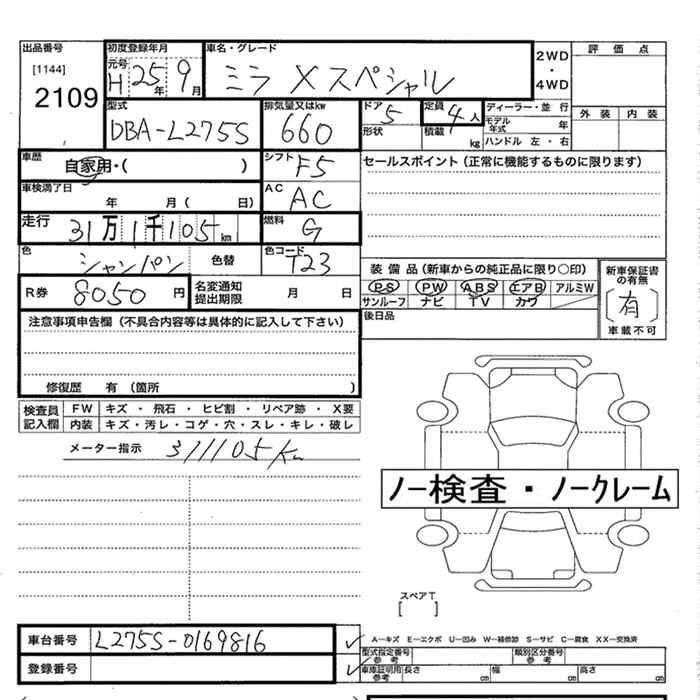 出品番号 初度登録年月 車名・グレード 評価点
[1144] 元号 H 25年 9月 ミラ Xスペシャル 2WD・4WD
2109 外装 内装
型式 排気量又はkw ドア 5 定員 4人 ディーラー・並行
DBA-L275S 660 形状 積載 kg モデル年式 年
ハンドル 左・右
車歴 自家用・( ) シフト F5 セールスポイント (正常に機能するものに限ります)
車検満了日 年 月 ( 日) AC AC
走行 31万1千105km 燃料 G
色 シャンパン 色替 色コード T23
装備品 (新車からの純正品に限り○印) 新車保証書の有無
R券 8050円 名変通知提出期限 月 日 PS PW ABS エアB アルミW [有]
サンルーフ ナビ TV カワ 車載不可
注意事項申告欄 (不具合内容等は具体的に記入して下さい) 後日品
修復歴 有 (箇所 )
検査員記入欄 FW キズ・飛石・ヒビ割・リペア跡・X要
内装 キズ・汚レ・コゲ・穴・スレ・キレ・破レ
メーター指示 311105Km
ノー検査・ノークレーム
スペアT
[ ]
車台番号 L275S-0169816 A―キズ E―エクボ U―凹み W―補修跡 S―サビ C―腐食 XX―交換済
型式指定番号 参考 類別区分番号 参考
登録番号 車庫証明用 参考 長さ cm 幅 cm 高さ cm